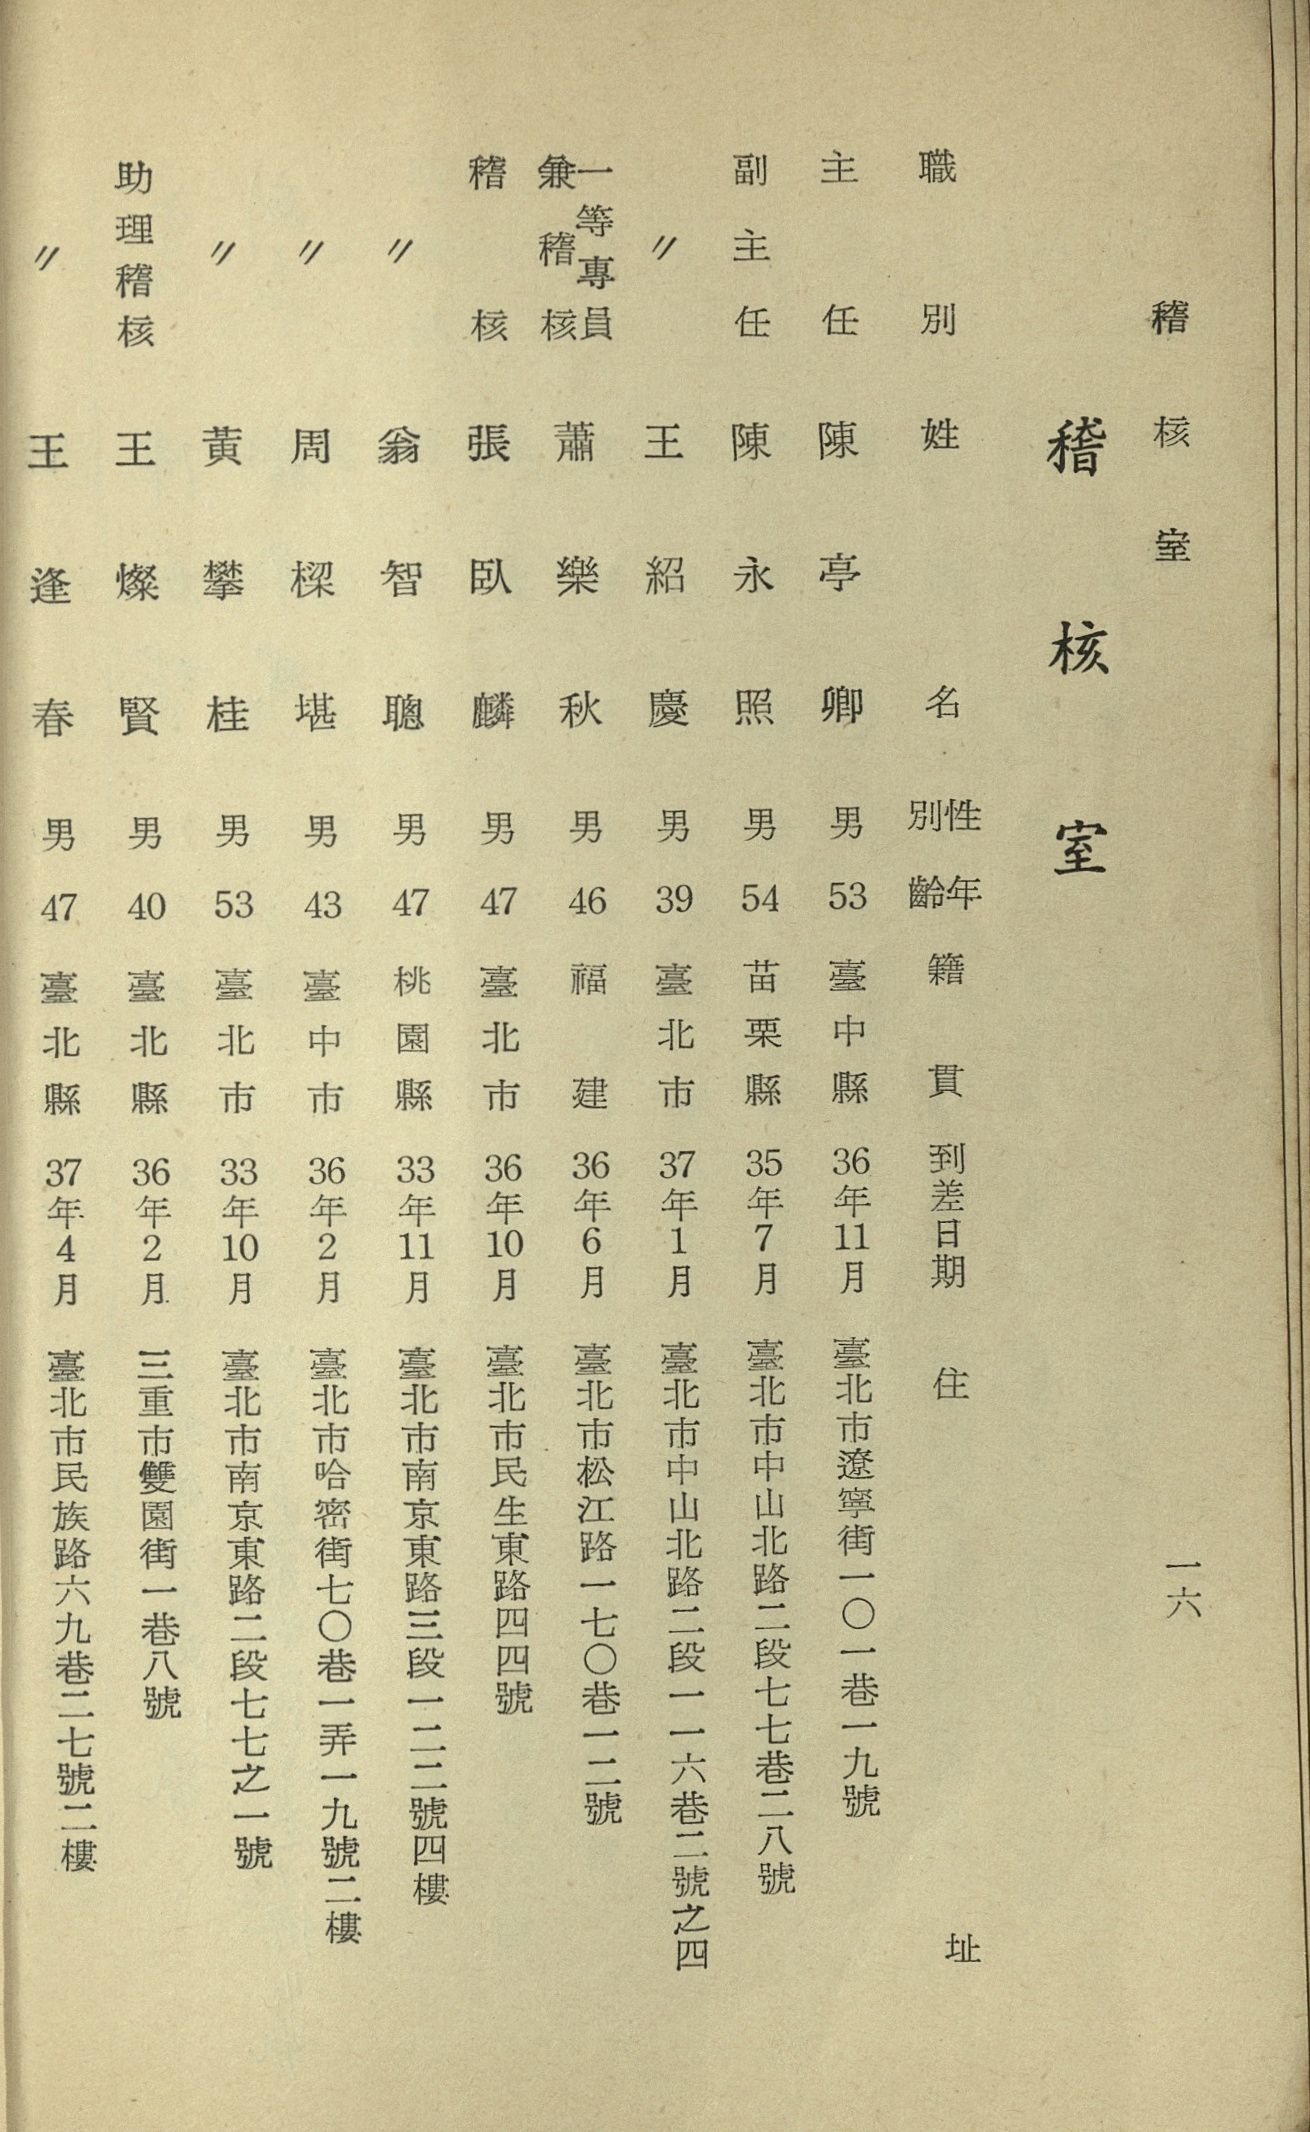 稽核室
一六
稽核室
職別 姓名 性別 年齡 籍貫 到差日期 住址
主任 陳亭卿 男 53 臺中縣 36年11月 臺北市遼寧街一〇一巷一九號
副主任 陳永照 男 54 苗栗縣 35年7月 臺北市中山北路二段七七巷二八號
〃 王紹慶 男 39 臺北市 37年1月 臺北市中山北路二段一一六巷二號之四
一等專員兼稽核 蕭樂秋 男 46 福建 36年6月 臺北市松江路一七〇巷一二號
稽核 張臥麟 男 47 臺北市 36年10月 臺北市民生東路四四號
〃 翁智聰 男 47 桃園縣 33年11月 臺北市南京東路三段一二二號四樓
〃 周樑堪 男 43 臺中市 36年2月 臺北市哈密街七〇巷一弄一九號二樓
〃 黃攀桂 男 53 臺北市 33年10月 臺北市南京東路二段七七之一號
助理稽核 王燦賢 男 40 臺北縣 36年2月 三重市雙園街一巷八號
〃 王逢春 男 47 臺北縣 37年4月 臺北市民族路六九巷二七號二樓